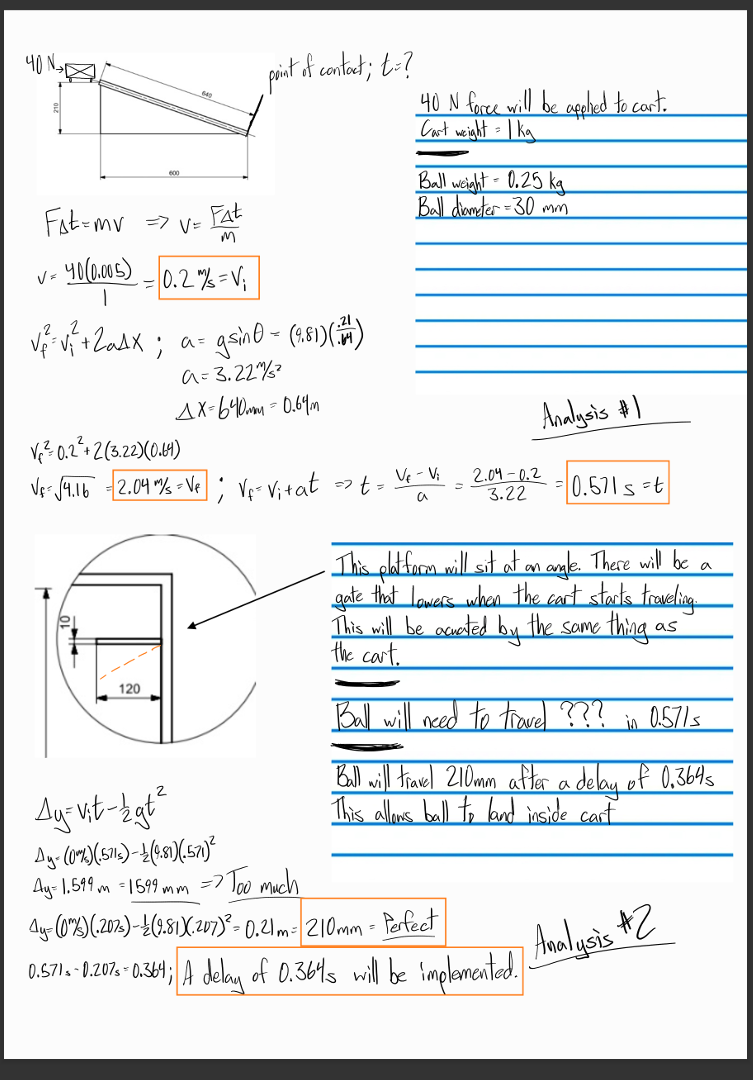 40 N
point of contact; t=?
640
210
600
40 N force will be applied to cart.
Cart weight = 1 kg
Ball weight = 0.25 kg
Ball diameter = 30 mm
FΔt=mv => v= FΔt/m
v= 40(0.005)/1 = 0.2 m/s = Vi
Vf²=Vi²+2aΔx ; a= gsinθ = (9.81)(.21/.64)
a=3.22 m/s²
Δx=640mm = 0.64m
Analysis #1
Vf²=0.2²+2(3.22)(0.64)
Vf=√4.16 = 2.04 m/s = Vf ; Vf=Vi+at => t= (Vf-Vi)/a = (2.04-0.2)/3.22 = 0.571 s =t
10
120
This platform will sit at an angle. There will be a
gate that lowers when the cart starts traveling.
This will be acuated by the same thing as
the cart.
Ball will need to travel ??? in 0.571s
Ball will travel 210mm after a delay of 0.364s
This allows ball to land inside cart
Δy=Vit-½gt²
Δy=(0m/s)(.571s)-½(9.81)(.571)²
Δy=1.599 m =1599 mm => Too much
Δy=(0m/s)(.207s)-½(9.81)(.207)²=0.21m= 210mm = Perfect
Analysis #2
0.571s-0.207s=0.364; A delay of 0.364s will be implemented.